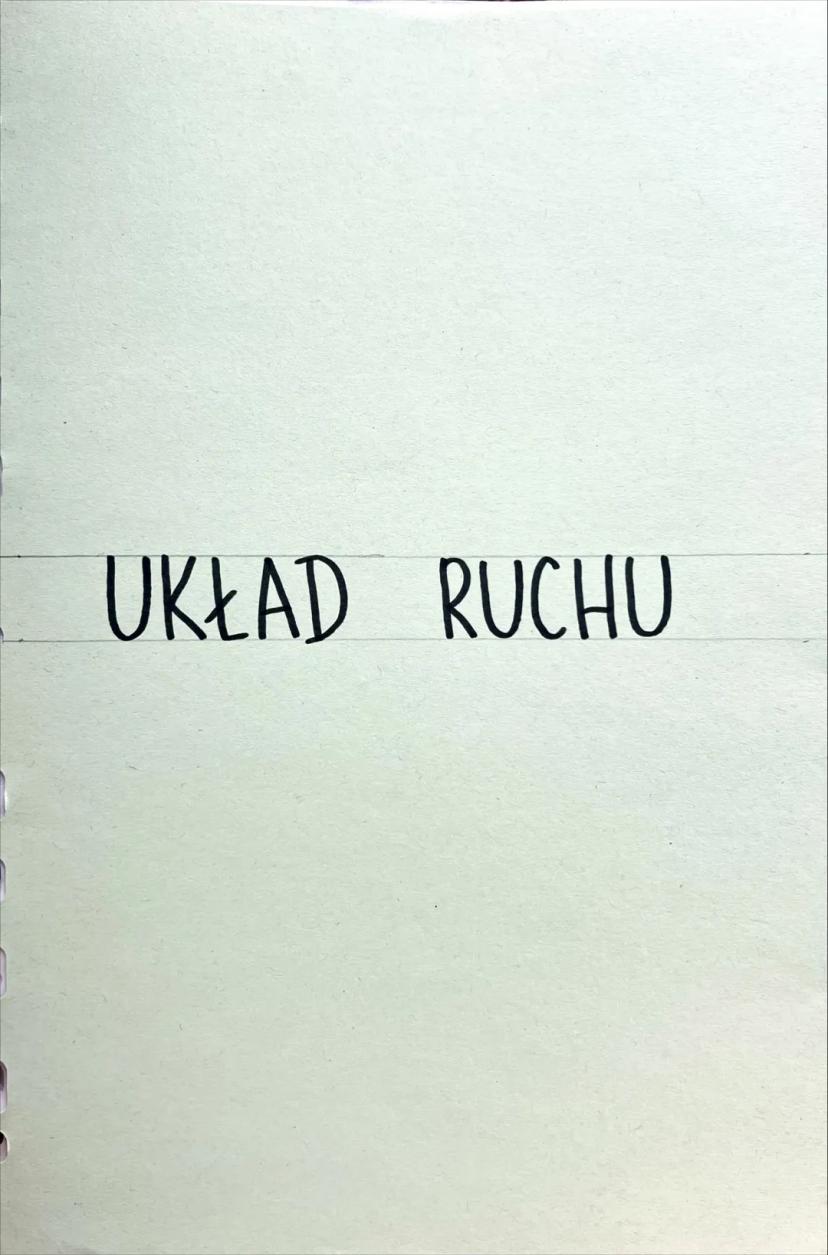 UKŁAD RUCHU